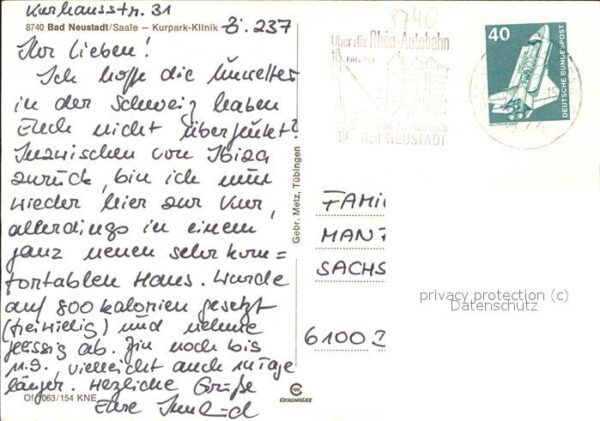 Kurhausstr. 31
8740 Bad Neustadt/Saale – Kurpark-Klinik Z. 237
Ihr Lieben!
Ich hoffe die Unwetter
in der Schweiz haben
Euch nicht
Inzwischen von Ibiza
zurück, bin ich nun
wieder hier zur Kur,
allerdings in einem
ganz neuen sehr kom=
fortablen Haus. Wurde
auf 800 Kalorien gesetzt
(freiwillig) und nehme
fleissig ab. Bin noch bis
11.9., vielleicht auch n Tage
länger. Herzliche Grüße
Eure
Of 1063/154 KNE
Gebr. Metz, Tübingen
CHROMOLUX
8740
Über die Rhön-Autobahn
BAD NEUSTADT
40
DEUTSCHE BUNDESPOST
FAMI
MANZ
SACHS
6100
privacy protection (c)
Datenschutz